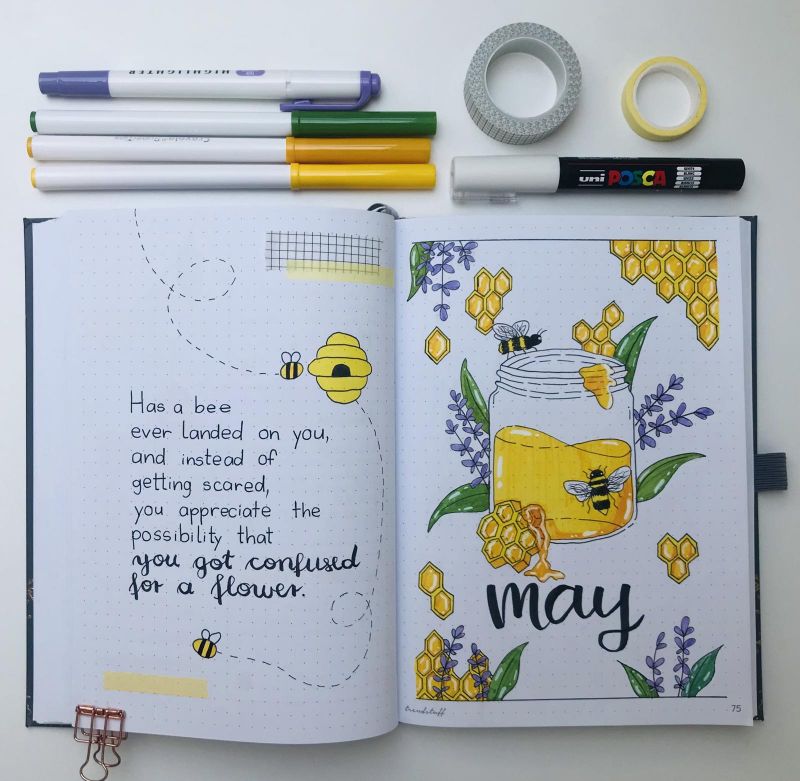 HIGHLIGHTER
Crayola SuperTips
uni POSCA
Has a bee
ever landed on you,
and instead of
getting scared,
you appreciate the
possibility that
you got confused
for a flower.
may
trendstuff
75